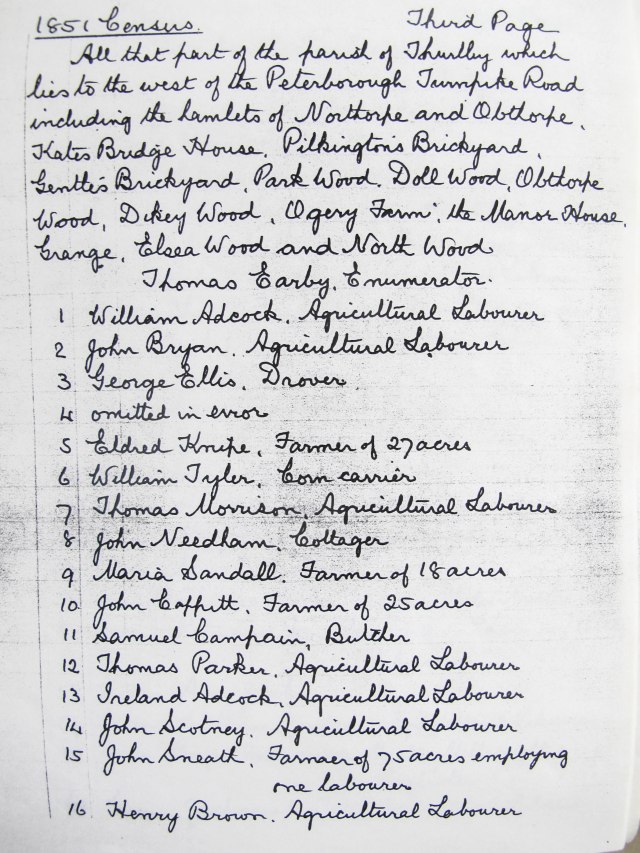 1851 Census. Third Page
All that part of the parish of Thurlby which
lies to the west of the Peterborough Turnpike Road
including the hamlets of Northorpe and Obthorpe,
Kates Bridge House, Pilkington's Brickyard,
Gentle's Brickyard, Park Wood, Doll Wood, Obthorpe
Wood, Dikey Wood, Ogery Farm, the Manor House,
Grange, Elsea Wood and North Wood
Thomas Earby, Enumerator.
1 William Adcock, Agricultural Labourer
2 John Bryan, Agricultural Labourer
3 George Ellis, Drover
4 omitted in error
5 Eldred Knipe, Farmer of 27 acres
6 William Tyler, Corn carrier
7 Thomas Morrison, Agricultural Labourer
8 John Needham, Cottager
9 Maria Sandall, Farmer of 18 acres
10 John Coppitt, Farmer of 25 acres
11 Samuel Campain, Butcher
12 Thomas Parker, Agricultural Labourer
13 Ireland Adcock, Agricultural Labourer
14 John Scotney, Agricultural Labourer
15 John Sneath, Farmer of 75 acres employing
one labourer
16 Henry Brown, Agricultural Labourer